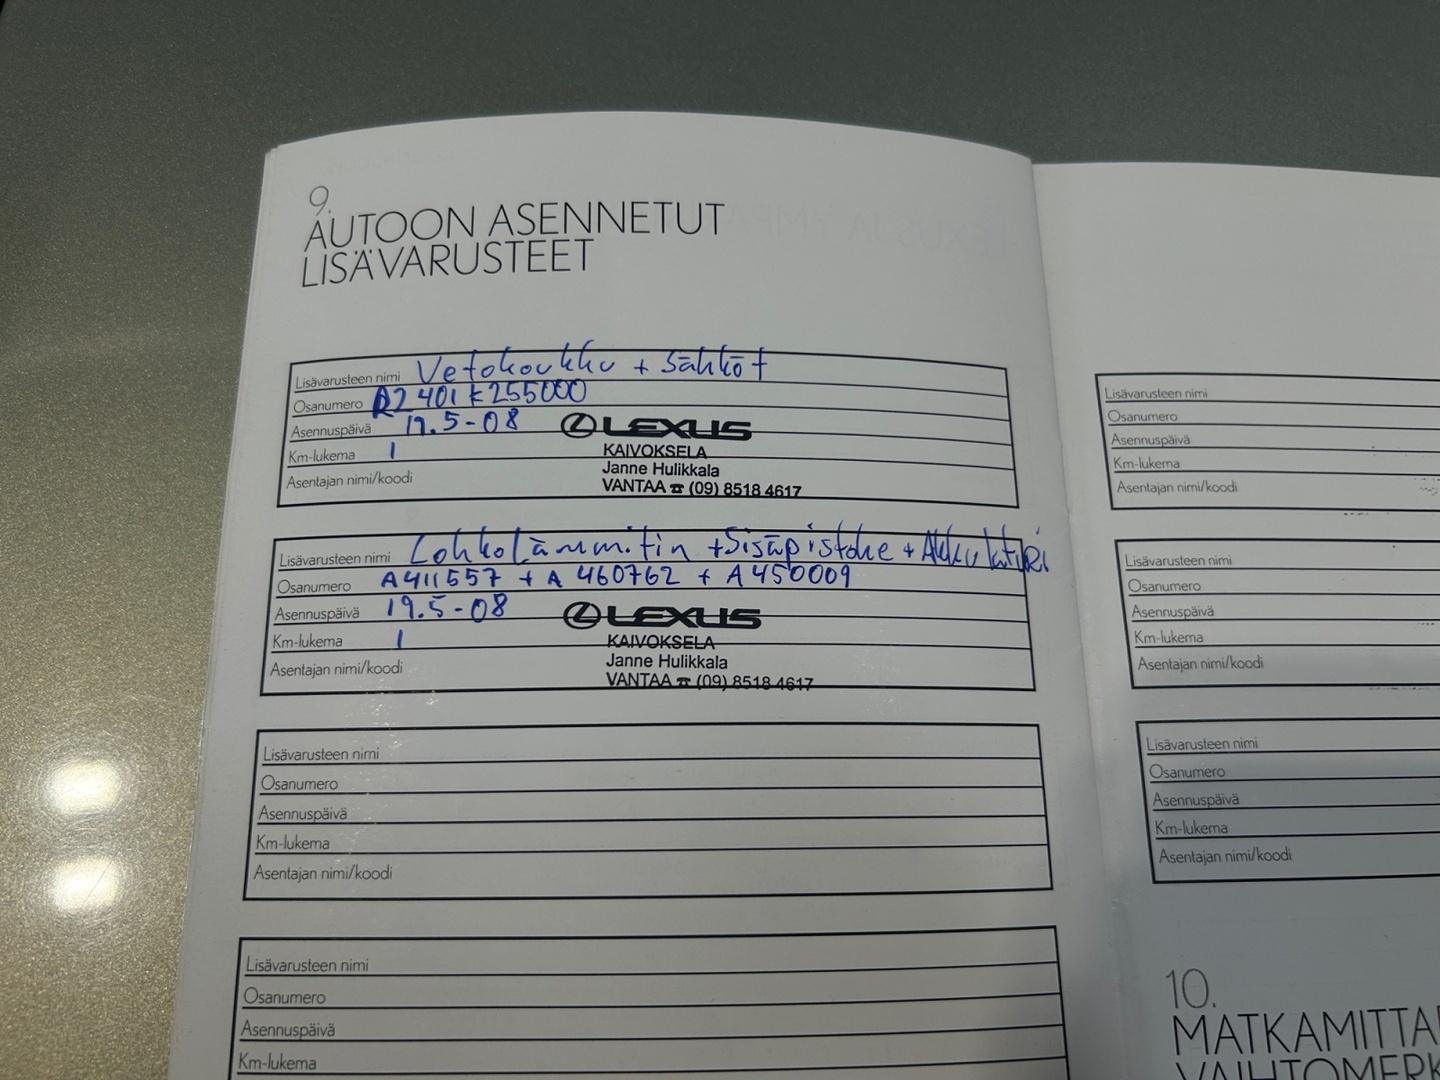 9.
AUTOON ASENNETUT
LISÄVARUSTEET
Lisävarusteen nimi Vetokoukku + Sähköt
Osanumero R2401K255000
Asennuspäivä 19.5-08
LEXUS
Km-lukema 1
KAIVOKSELA
Asentajan nimi/koodi
Janne Hulikkala
VANTAA ☎ (09) 8518 4617
Lisävarusteen nimi Lohkolämmitin + Sisäpistoke + Akkulaturi
Osanumero A411557 + A 460762 + A450009
Asennuspäivä 19.5-08
LEXUS
Km-lukema 1
KAIVOKSELA
Asentajan nimi/koodi
Janne Hulikkala
VANTAA ☎ (09) 8518 4617
Lisävarusteen nimi
Osanumero
Asennuspäivä
Km-lukema
Asentajan nimi/koodi
Lisävarusteen nimi
Osanumero
Asennuspäivä
Km-lukema
Lisävarusteen nimi
Osanumero
Asennuspäivä
Km-lukema
Asentajan nimi/koodi
Lisävarusteen nimi
Osanumero
Asennuspäivä
Km-lukema
Asentajan nimi/koodi
Lisävarusteen nimi
Osanumero
Asennuspäivä
Km-lukema
Asentajan nimi/koodi
10.
MATKAMITTA
VAIHTOMERK